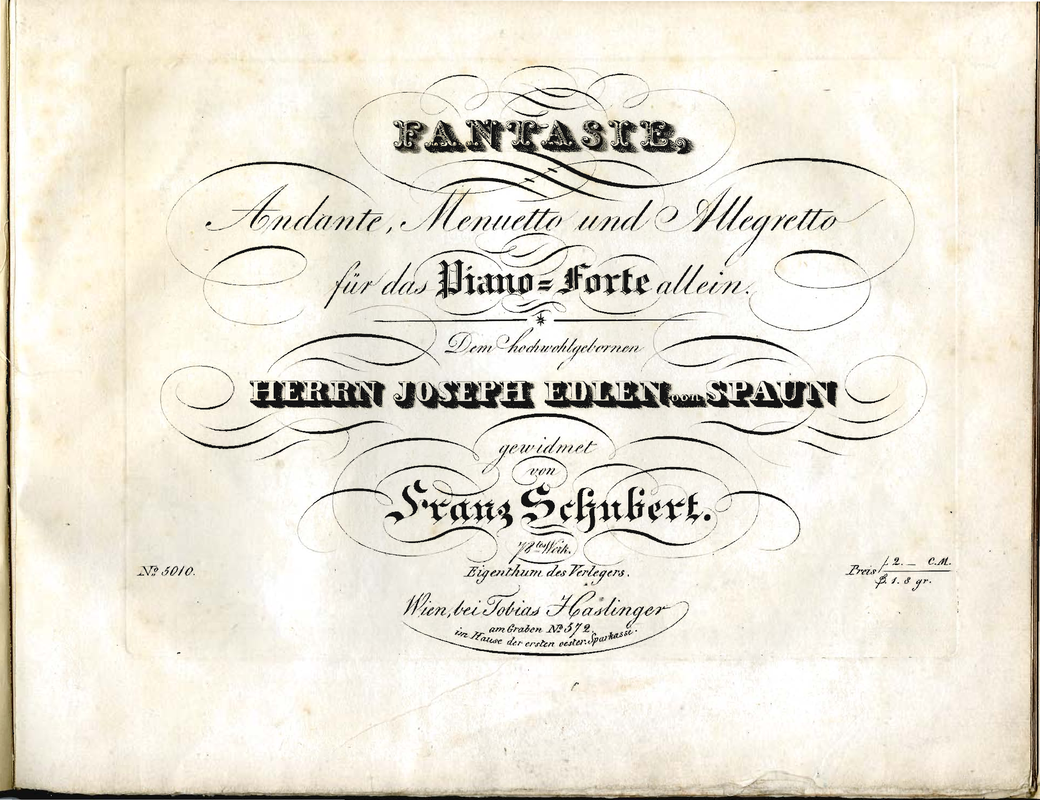 FANTASIE,
Andante, Menuetto und Allegretto
für das Piano=Forte allein.
Dem hochwohlgebornen
HERRN JOSEPH EDLEN von SPAUN
gewidmet
von
Franz Schubert.
78tes Werk.
Eigenthum des Verlegers.
No 5010.
Preis f. 2. _ C.M.
1. 8 gr.
Wien, bei Tobias Haslinger
am Graben No 572
im Hause der ersten oester. Sparkasse.